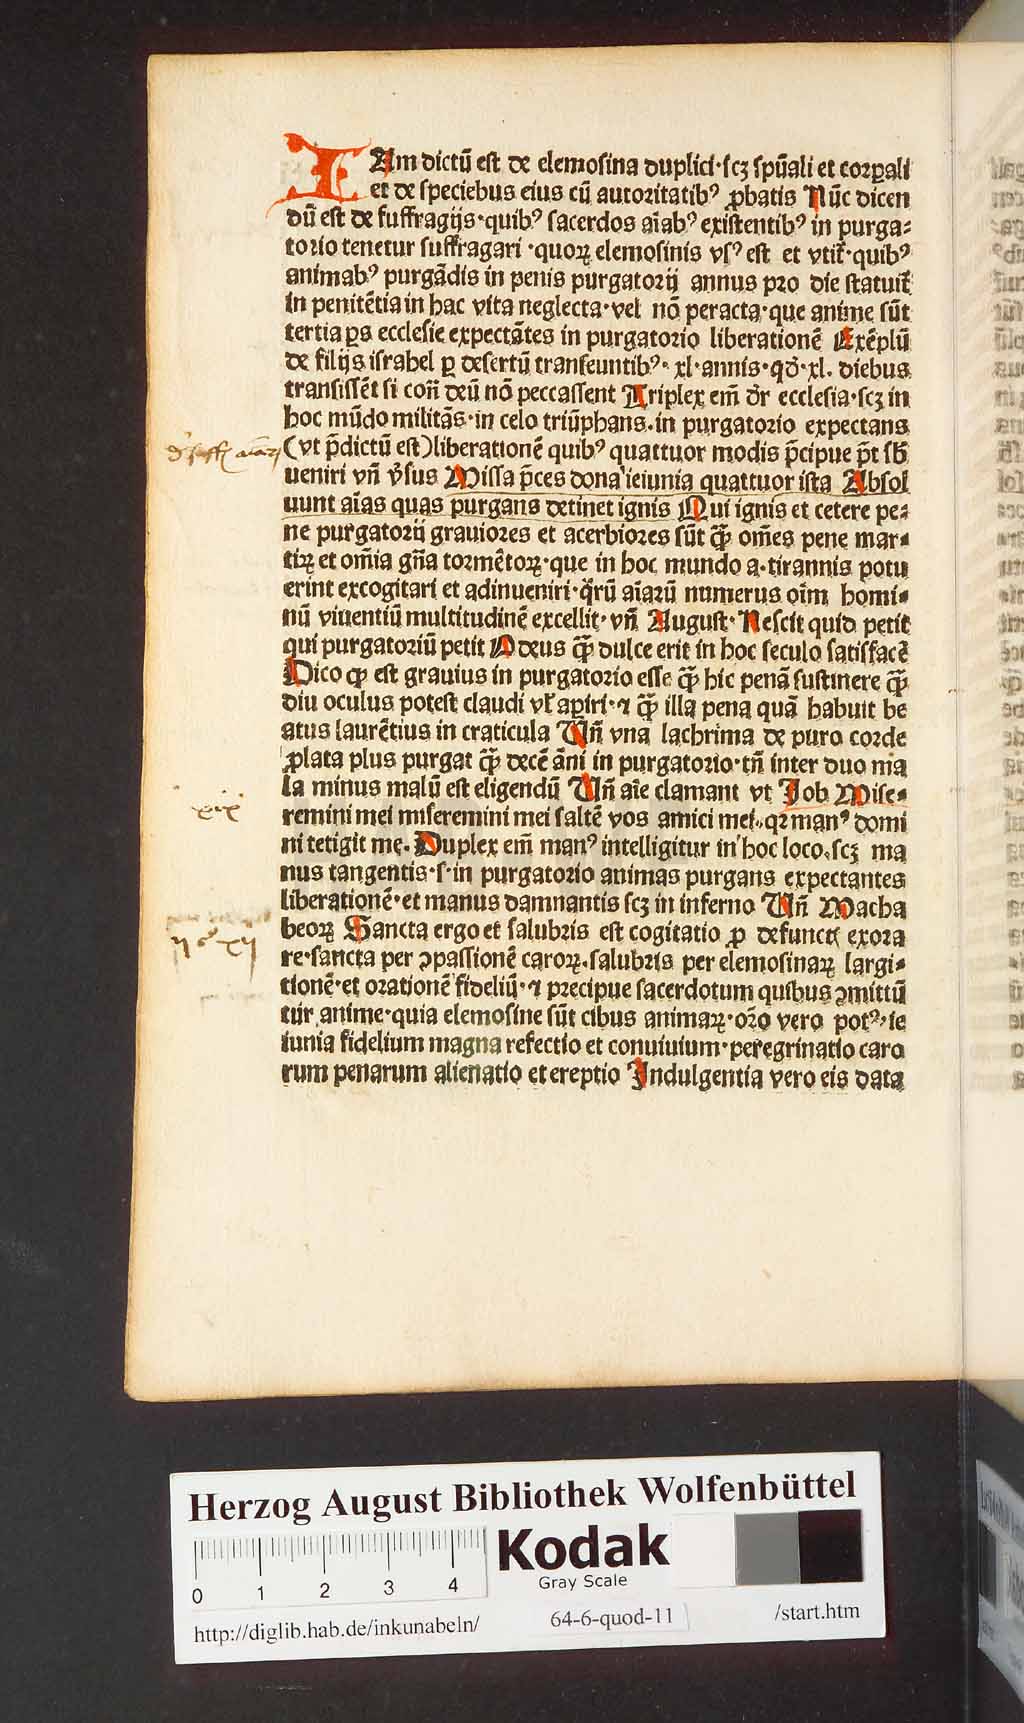 IAm dictū est de elemosina duplici·scꝫ spūali et corꝑali
et de speciebus eius cū autoritatibꝰ ꝓbatis Nūc dicen
dū est de suffragijs·quibꝰ sacerdos aīabꝰ existentibꝰ in purga⸗
torio tenetur suffragari ·quoꝝ elemosinis vsꝰ est et vtit᷑·quibꝰ
animabꝰ purgādis in penis purgatorij annus pro die statuit᷑
in penitētia in hac vita neglecta·vel nō peracta·que anime sūt
tertia ꝑs ecclesie expectātes in purgatorio liberationē Exēplū
de filijs israhel ꝑ desertū transeuntibꝰ· xl·annis·qd̛·xl. diebus
transissēt si coꝝ deū nō peccassent Triplex em̄ dr̄ ecclesia·scꝫ in
hoc mūdo militās·in celo triūphans.in purgatorio expectans
(vt p̄dictū est)liberationē quibꝰ quattuor modis p̄cipue p̄t sb̄
ueniri vn̄ v̓sus Missa p̄ces dona ieiunia quattuor ista Absol
uunt aīas quas purgans detinet ignis Qui ignis et cetere pe⸗
ne purgatorij grauiores et acerbiores sūt ꝙ̄ om̄es pene mar⸗
tiꝝ et om̄ia gn̄a tormētoꝝ·que in hoc mundo a·tirannis potu
erint excogitari et adinueniri·q̄rū aīarū numerus oīm homi⸗
nū viuentiū multitudinē excellit·vn̄ August· Nescit quid petit
qui purgatoriū petit O deus ꝙ̄ dulce erit in hoc seculo satisfacē
Dico ꝙ est grauius in purgatorio esse ꝙ̄ hic penā sustinere ꝙ̄
diu oculus potest claudi vl̓ aꝑiri·⁊ ꝙ̄ illa pena quā habuit be
atus laurētius in craticula Vn̄ vna lachrima de puro corde
ꝓlata plus purgat ꝙ̄ decē āni in purgatorio·tn̄ inter duo ma
la minus malū est eligendū Vn̄ aīe clamant vt Job Mise⸗
remini mei miseremini mei saltē vos amici mei·qꝛ manꝰ domi
ni tetigit me. Duplex em̄ manꝰ intelligitur in hoc loco.scꝫ ma
nus tangentis·s·in purgatorio animas purgans expectantes
liberationē·et manus damnantis scꝫ in inferno Vn̄ Macha
beoꝝ Sancta ergo et salubris est cogitatio ꝓ defunctꝭ exora
re·sancta per ↄpassionē caroꝝ.salubris per elemosinaꝝ largi⸗
tionē·et orationē fideliū·⁊ precipue sacerdotum quibus ↄmittū
tur anime·quia elemosine sūt cibus animaꝝ·or̄o vero potꝰ·ie
iunia fidelium magna refectio et conuiuium·peregrinatio caro
rum penarum alienatio et ereptio Indulgentia vero eis data
xix
Herzog August Bibliothek Wolfenbüttel
0 1 2 3 4
Kodak
Gray Scale
http://diglib.hab.de/inkunabeln/ 64-6-quod-11 /start.htm